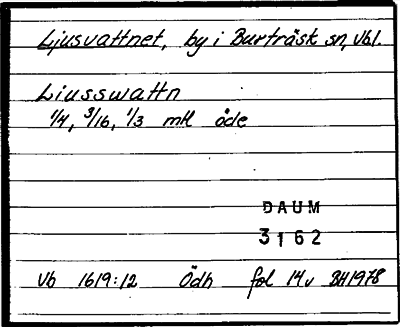 Ljusvattnet, by i Burträsk sn, Vbl.
Liusswattn
1/4, 3/16, 1/3 mtl öde
DAUM
3162
Vb 1619:12 Ödh fol 14v BH1978